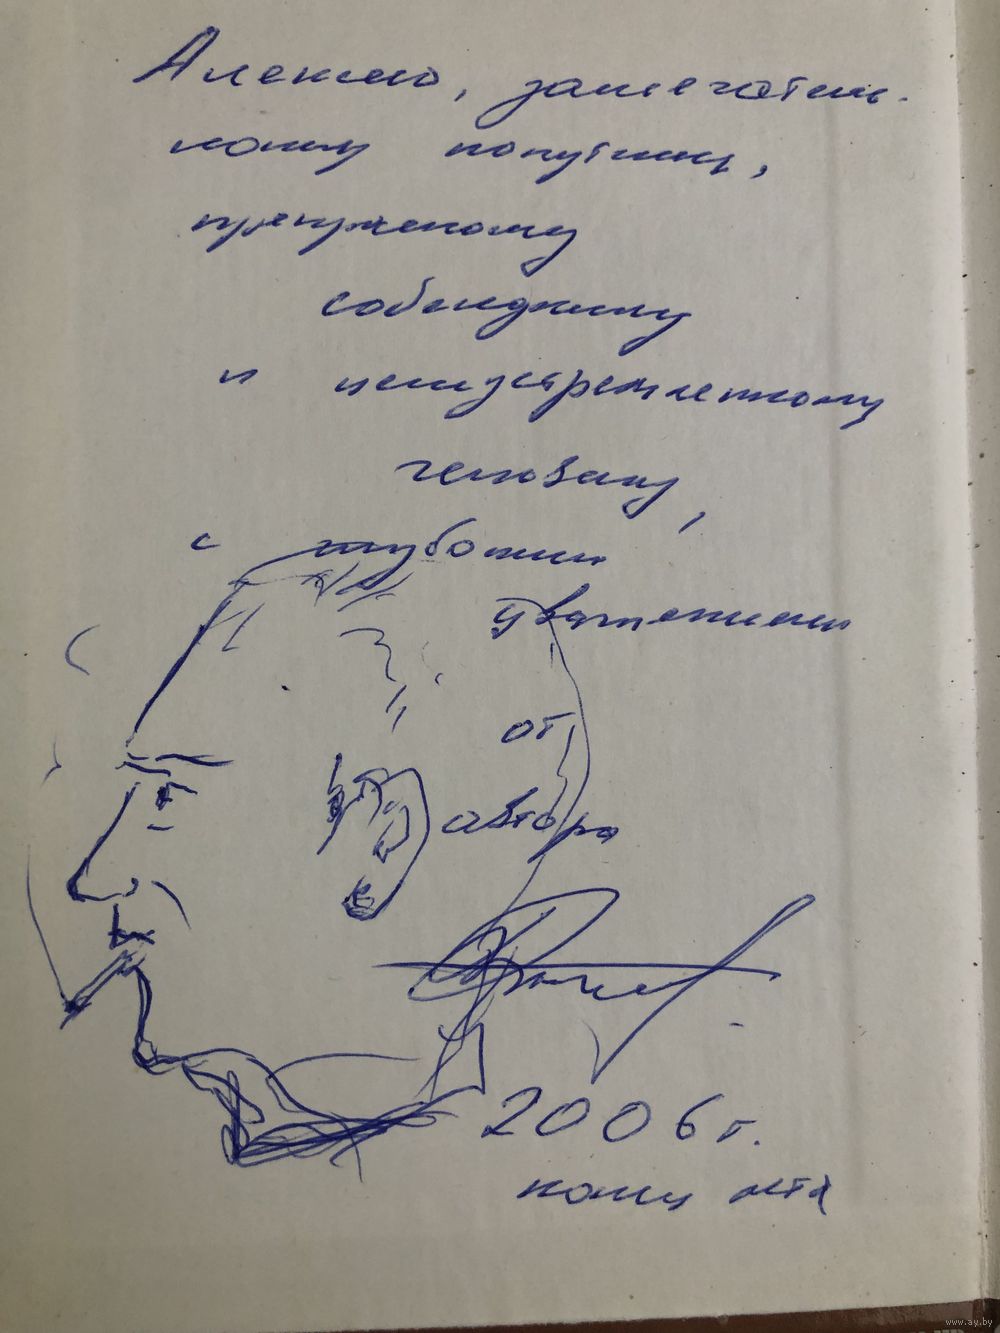 Алексею, замечатель-
ному попутчику,
прекрасному
собеседнику
и целеустремленному
человеку,
с глубоким
уважением
от
автора
2006 г.
конец лета
www.ay.by